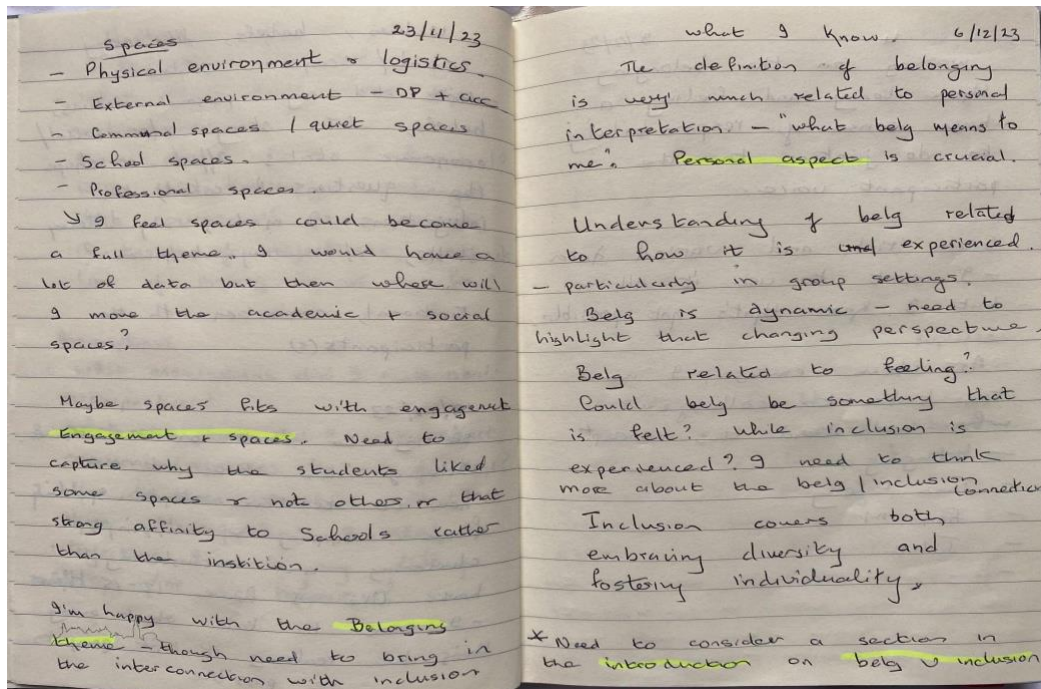 Spaces 23/11/23
- Physical environment & logistics.
- External environment - DP + acc
- Communal spaces / quiet spaces
- School spaces.
- Professional spaces
I feel spaces could become
a full theme. I would have a
lot of data but then where will
I move the academic + social
spaces?
Maybe spaces fits with engagement
Engagement + spaces. Need to
capture why the students liked
some spaces & not others, or that
strong affinity to Schools rather
than the instition.
I'm happy with the Belonging
theme - though need to bring in
the interconnection with inclusion
What I Know. 6/12/23
The definition of belonging
is very much related to personal
interpretation - "what belg means to
me". Personal aspect is crucial.
Understanding of belg related
to how it is experienced.
- particularly in group settings.
Belg is dynamic - need to
highlight that changing perspective.
Belg related to feeling?
Could belg be something that
is felt? While inclusion is
experienced? I need to think
more about the belg / inclusion connection
Inclusion covers both
embracing diversity and
fostering individuality.
* Need to consider a section in
the introduction on belg v inclusion